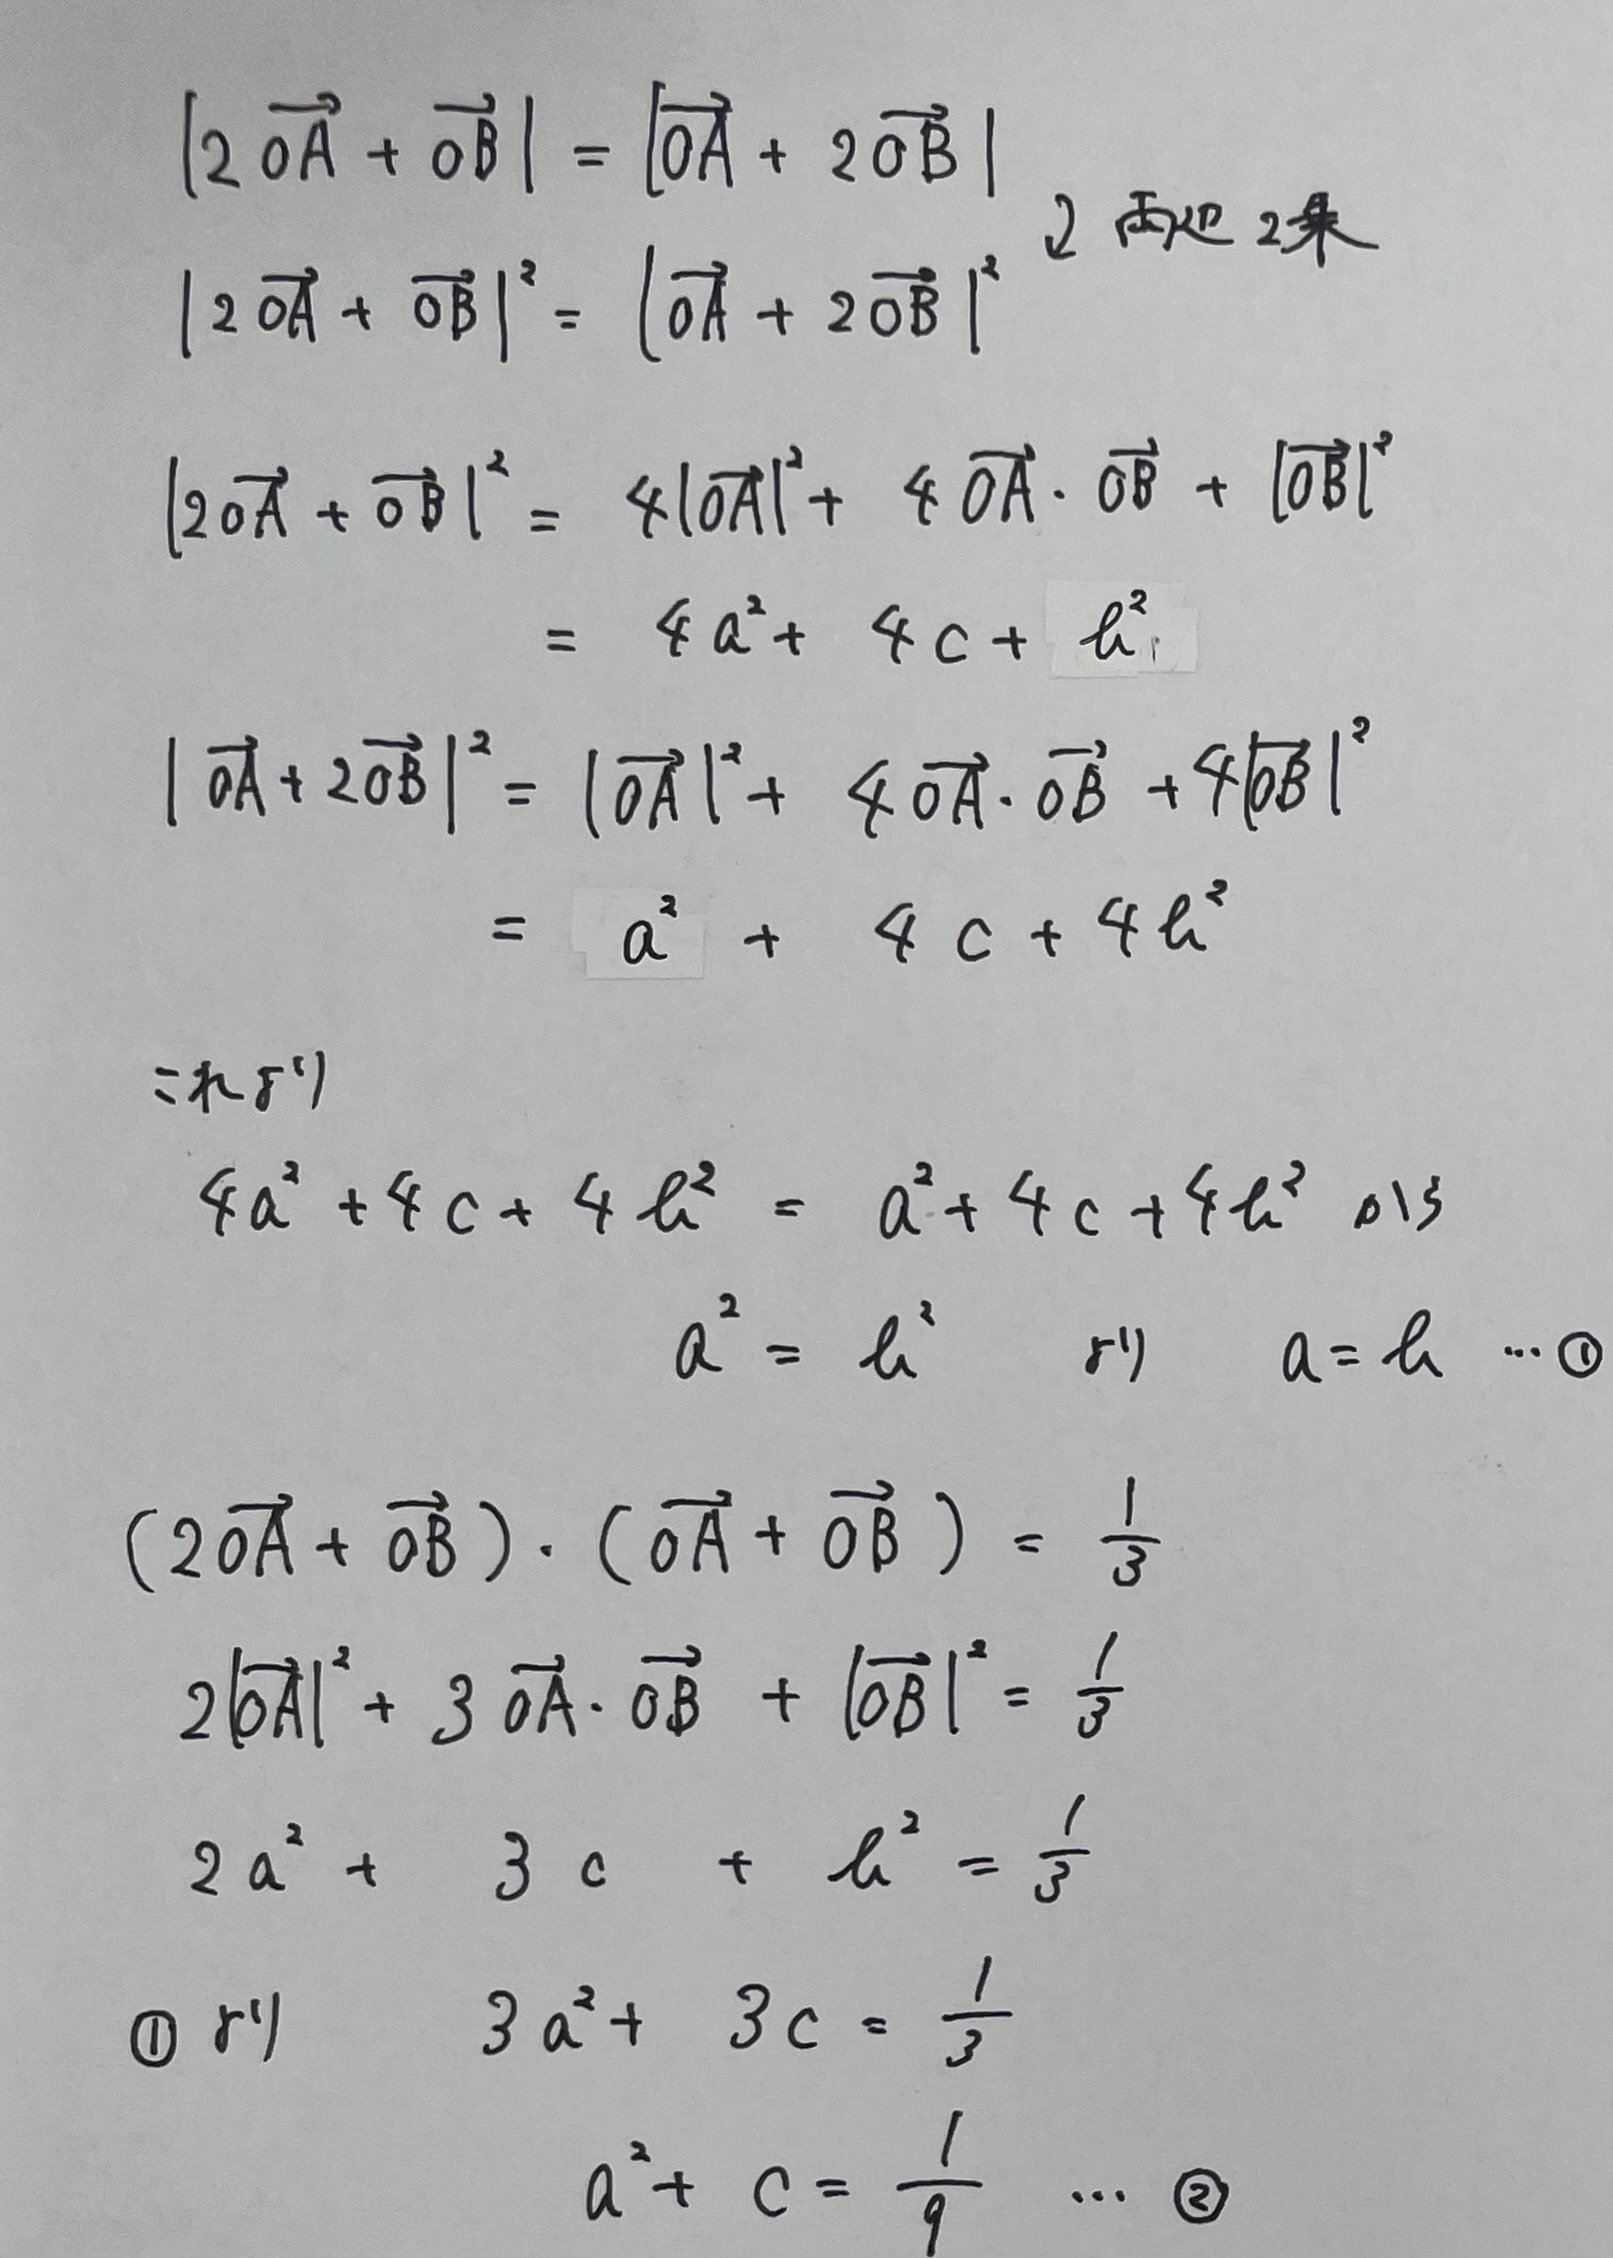 |2OA→ + OB→| = |OA→ + 2OB→|
↓ 両辺2乗
|2OA→ + OB→|² = |OA→ + 2OB→|²
|2OA→ + OB→|² = 4|OA→|² + 4OA→・OB→ + |OB→|²
= 4a² + 4c + b²
|OA→ + 2OB→|² = |OA→|² + 4OA→・OB→ + 4|OB→|²
= a² + 4c + 4b²
これより
4a² + 4c + 4b² = a² + 4c + 4b² から
a² = b² より a = b … ①
(2OA→ + OB→)・(OA→ + OB→) = 1/3
2|OA→|² + 3OA→・OB→ + |OB→|² = 1/3
2a² + 3c + b² = 1/3
①より 3a² + 3c = 1/3
a² + c = 1/9 … ②